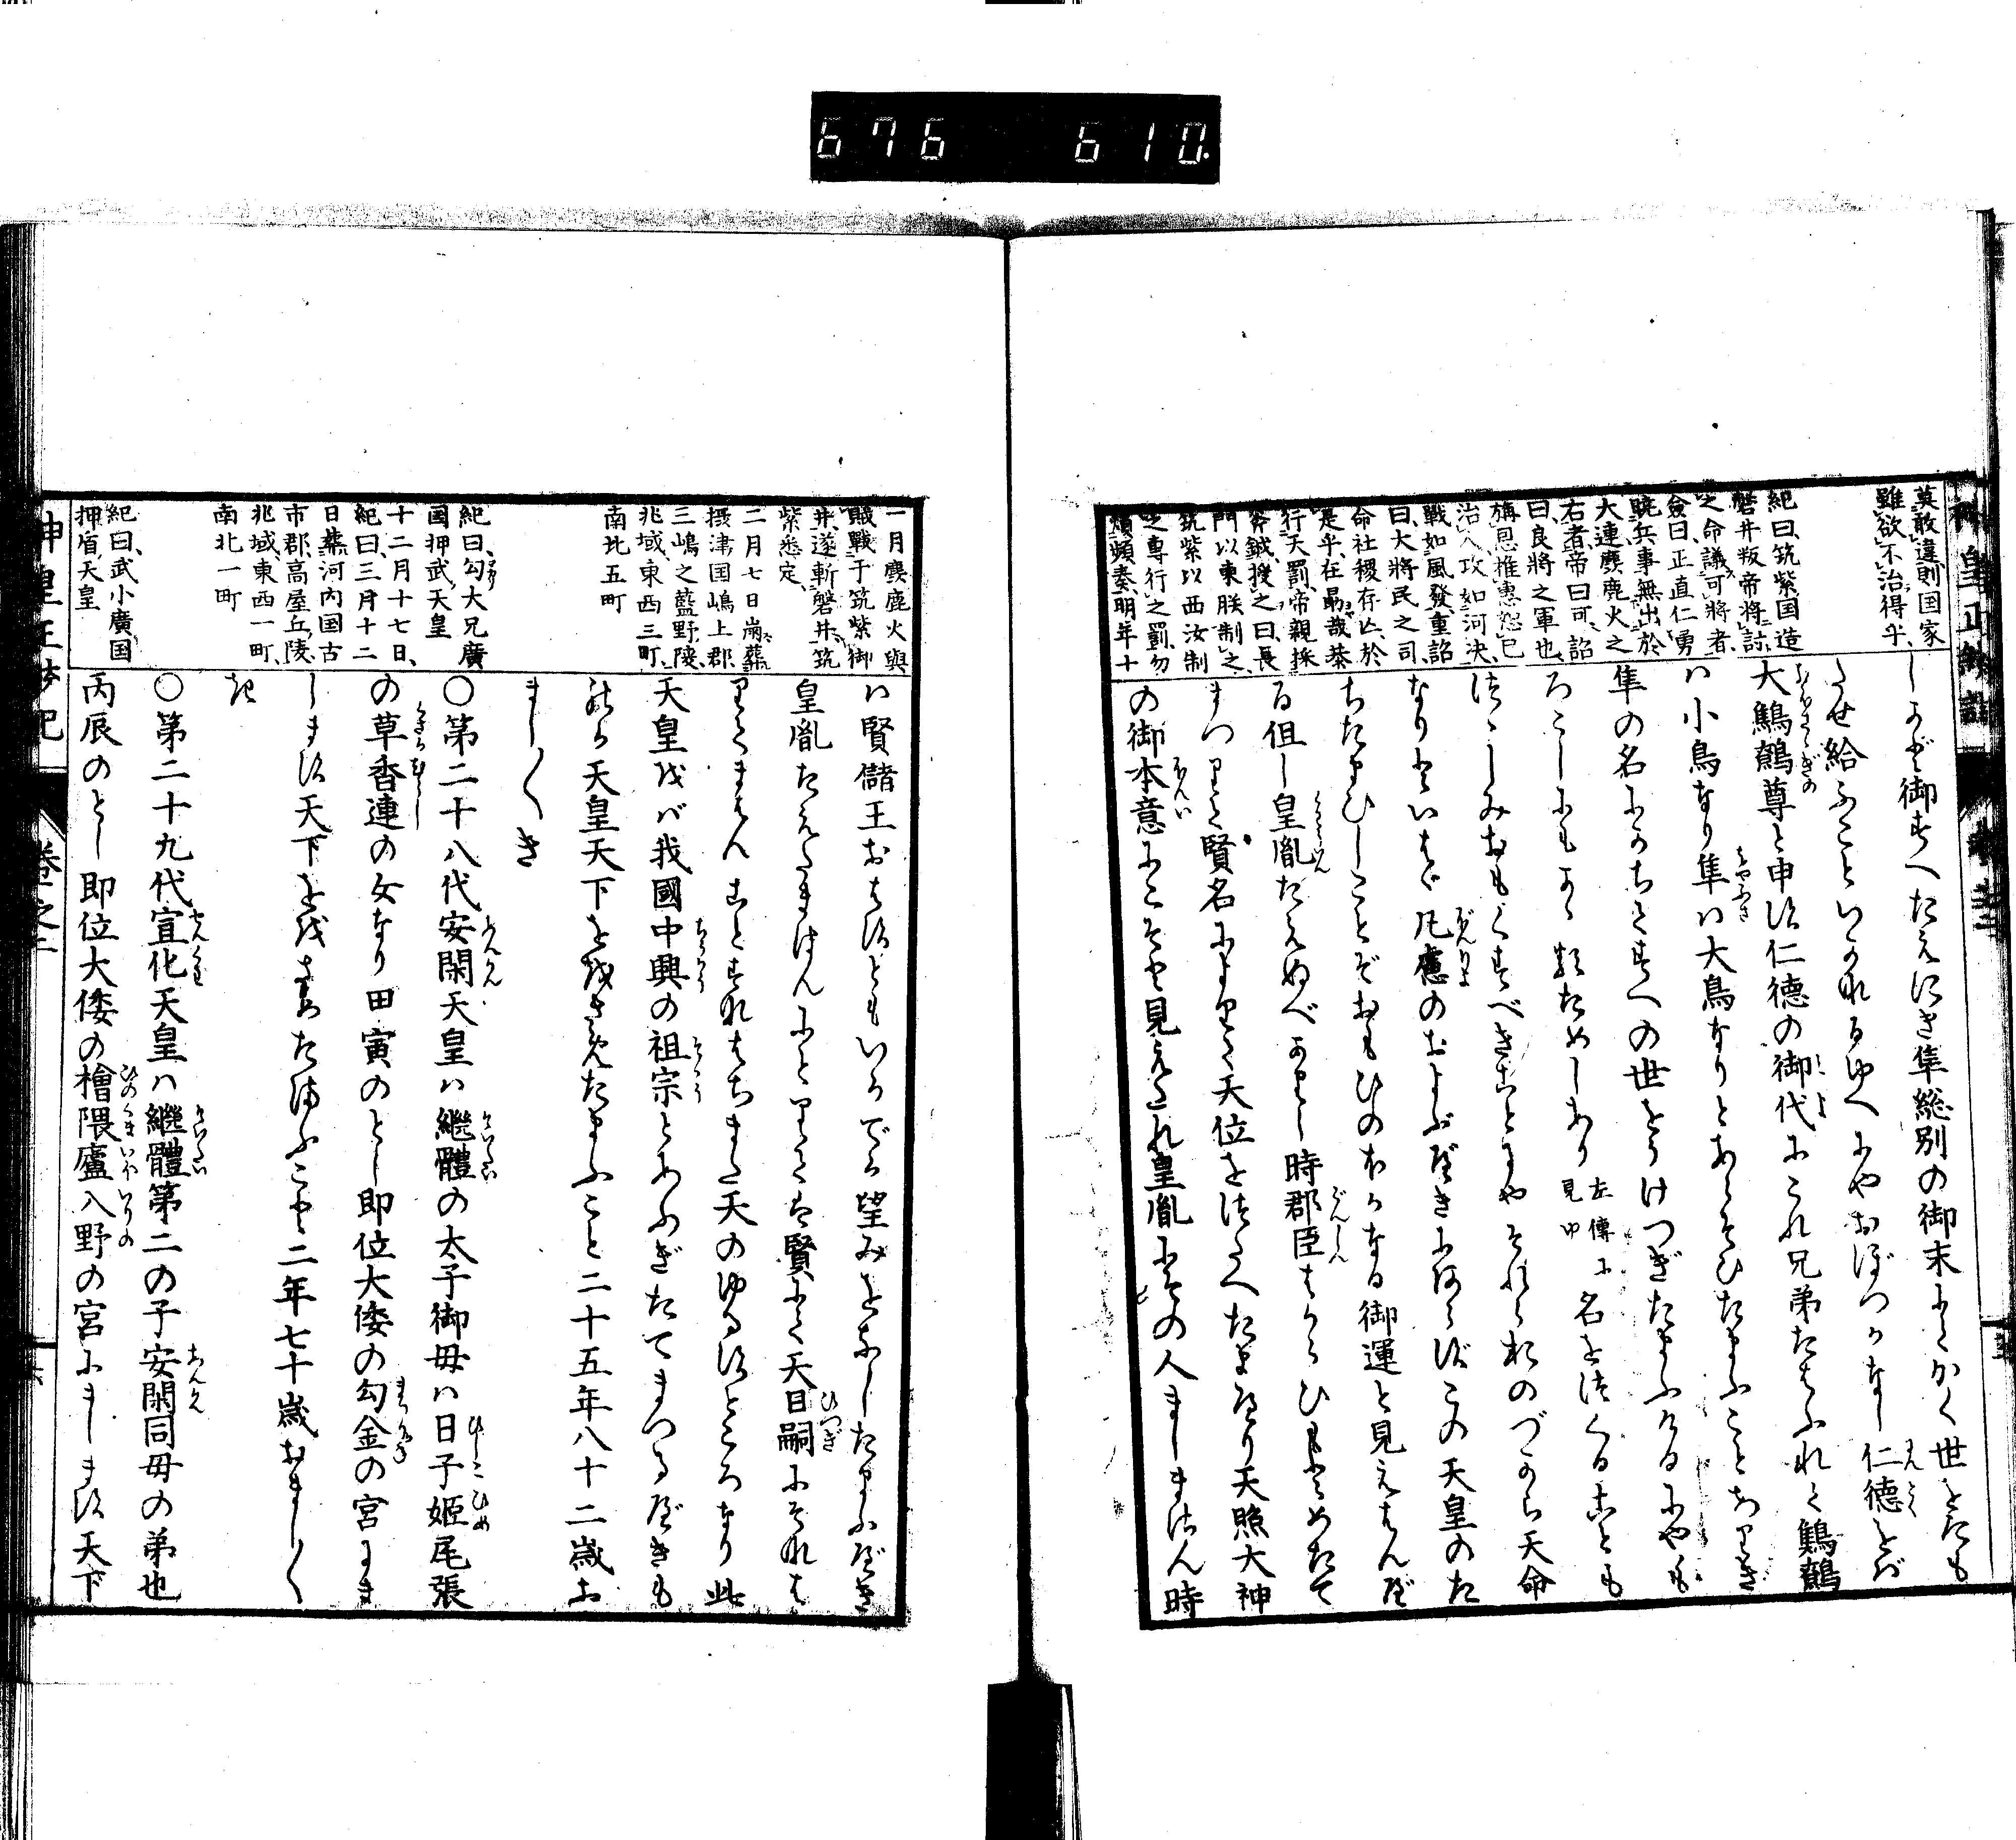 676 610.
莫敢違則国家
雖欲不治得乎
紀曰、筑紫国造
磐井叛帝将討
之命議可将者、
僉曰正直仁勇
暁兵事無出於
大連麁鹿火之
右者、帝曰可、詔
曰、良将之軍也、
稱恩推惠恕己
治人攻如河決、
戰如風發重詔
曰、大将民之司
命社稷存亡、於
是乎在勗哉恭
行天罰、帝親操
斧鉞授之曰、長
門以東朕制之、
筑紫以西汝制
之専行之罰勿
煩頻奏、明年十
しかど御すへたえにき隼総別の御末かく世をたも
たせ給ふこといかなるゆへにやおぼつかなし仁徳をば
大鷦鷯尊と申す仁徳の御代にこれ兄弟たはふれて鷦鷯
ハ小鳥なり隼ハ大鳥なりとあらそひたまふことありき
隼の名にかちてすへの世をうけつぎたまふけるにやも
ろこしにもかゝるためしあり左傳に見ゆ名をつくることも
つゝしみおもくすべきことにやそれもおのづから天命
なりといはゞ凡慮のおよぶべきにあらずこの天皇のた
ちたまひしことぞおもひのほかなる御運と見えはんべ
る但し皇胤たえぬべかりし時郡臣はからひもとめたて
まつりて賢名によりて天位をつたへたまへり天照大神
の御本意にこそと見えたれ皇胤にその人ましまさん時
一月麁鹿火與
賊戰于筑紫御
井、遂斬磐井、筑
紫悉定
二月七日崩葬
摂津国嶋上郡
三嶋之藍野陵
兆域、東西三町、
南北五町
紀曰、勾大兄廣
国押武天皇
十二月十七日、
紀曰、三月十二
日葬河内国古
市郡高屋丘陵、
兆域、東西一町、
南北一町
紀曰、武小廣国
押盾天皇
ハ賢儲王おはすともいかでか望みをなしたまふべき
皇胤たえたまはんにとりては賢にて天日嗣にそなは
りたまはんことすなはちまた天のゆるすところなり此
天皇をば我國中興の祖宗とあふぎたてまつるべきも
のか天皇天下をおさめたまふこと二十五年八十二歳お
まし〱き
○第二十八代安閑天皇ハ継體の太子御母ハ日子姫尾張
の草香連の女なり甲寅のとし即位大倭の勾金の宮にま
します天下をおさめたまふこと二年七十歳おまし〱
き
○第二十九代宣化天皇ハ継體第二の子安閑同母の弟也
丙辰のとし即位大倭の檜隈廬入野の宮にまします天下
神皇正統記 巻之二